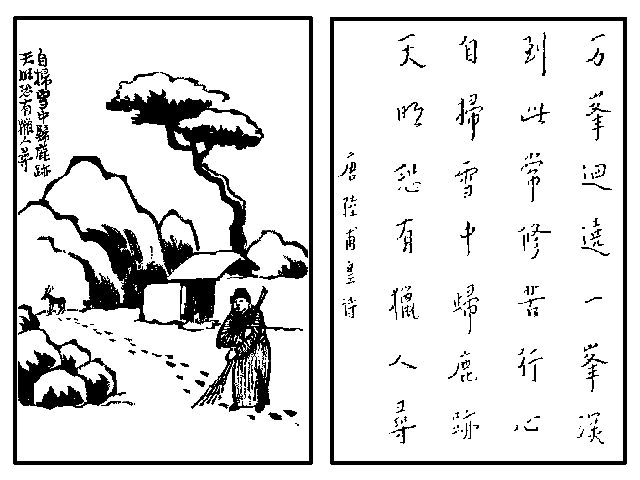 自掃雪中歸鹿跡
天明恐有獵人尋
万峯迴遶一峯深
到此常修苦行心
自掃雪中歸鹿跡
天明恐有獵人尋
唐陸甫皇詩